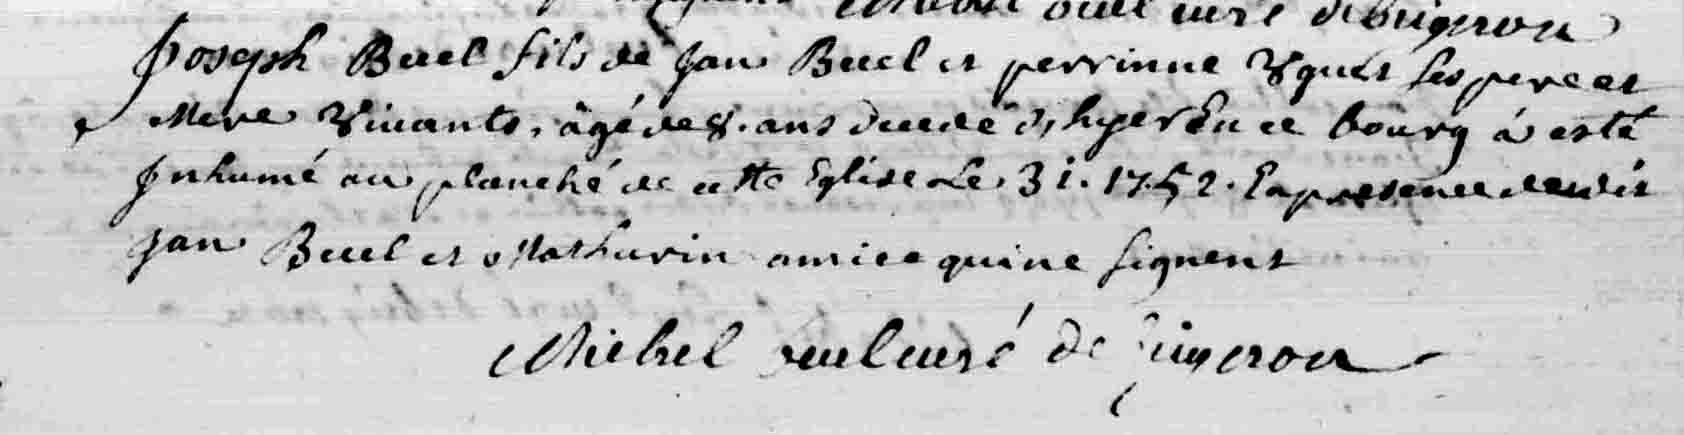 Joseph Buel fils de Jan Buel et perrinne ses pere et
Mere Vivants, âgé de 8. ans decedé d'hyer En ce bourg á esté
Inhumé au planché de cette Eglise Le 31. 1752. En presence de
Jan Buel et Mathurin amice qui ne signent
Michel curé de